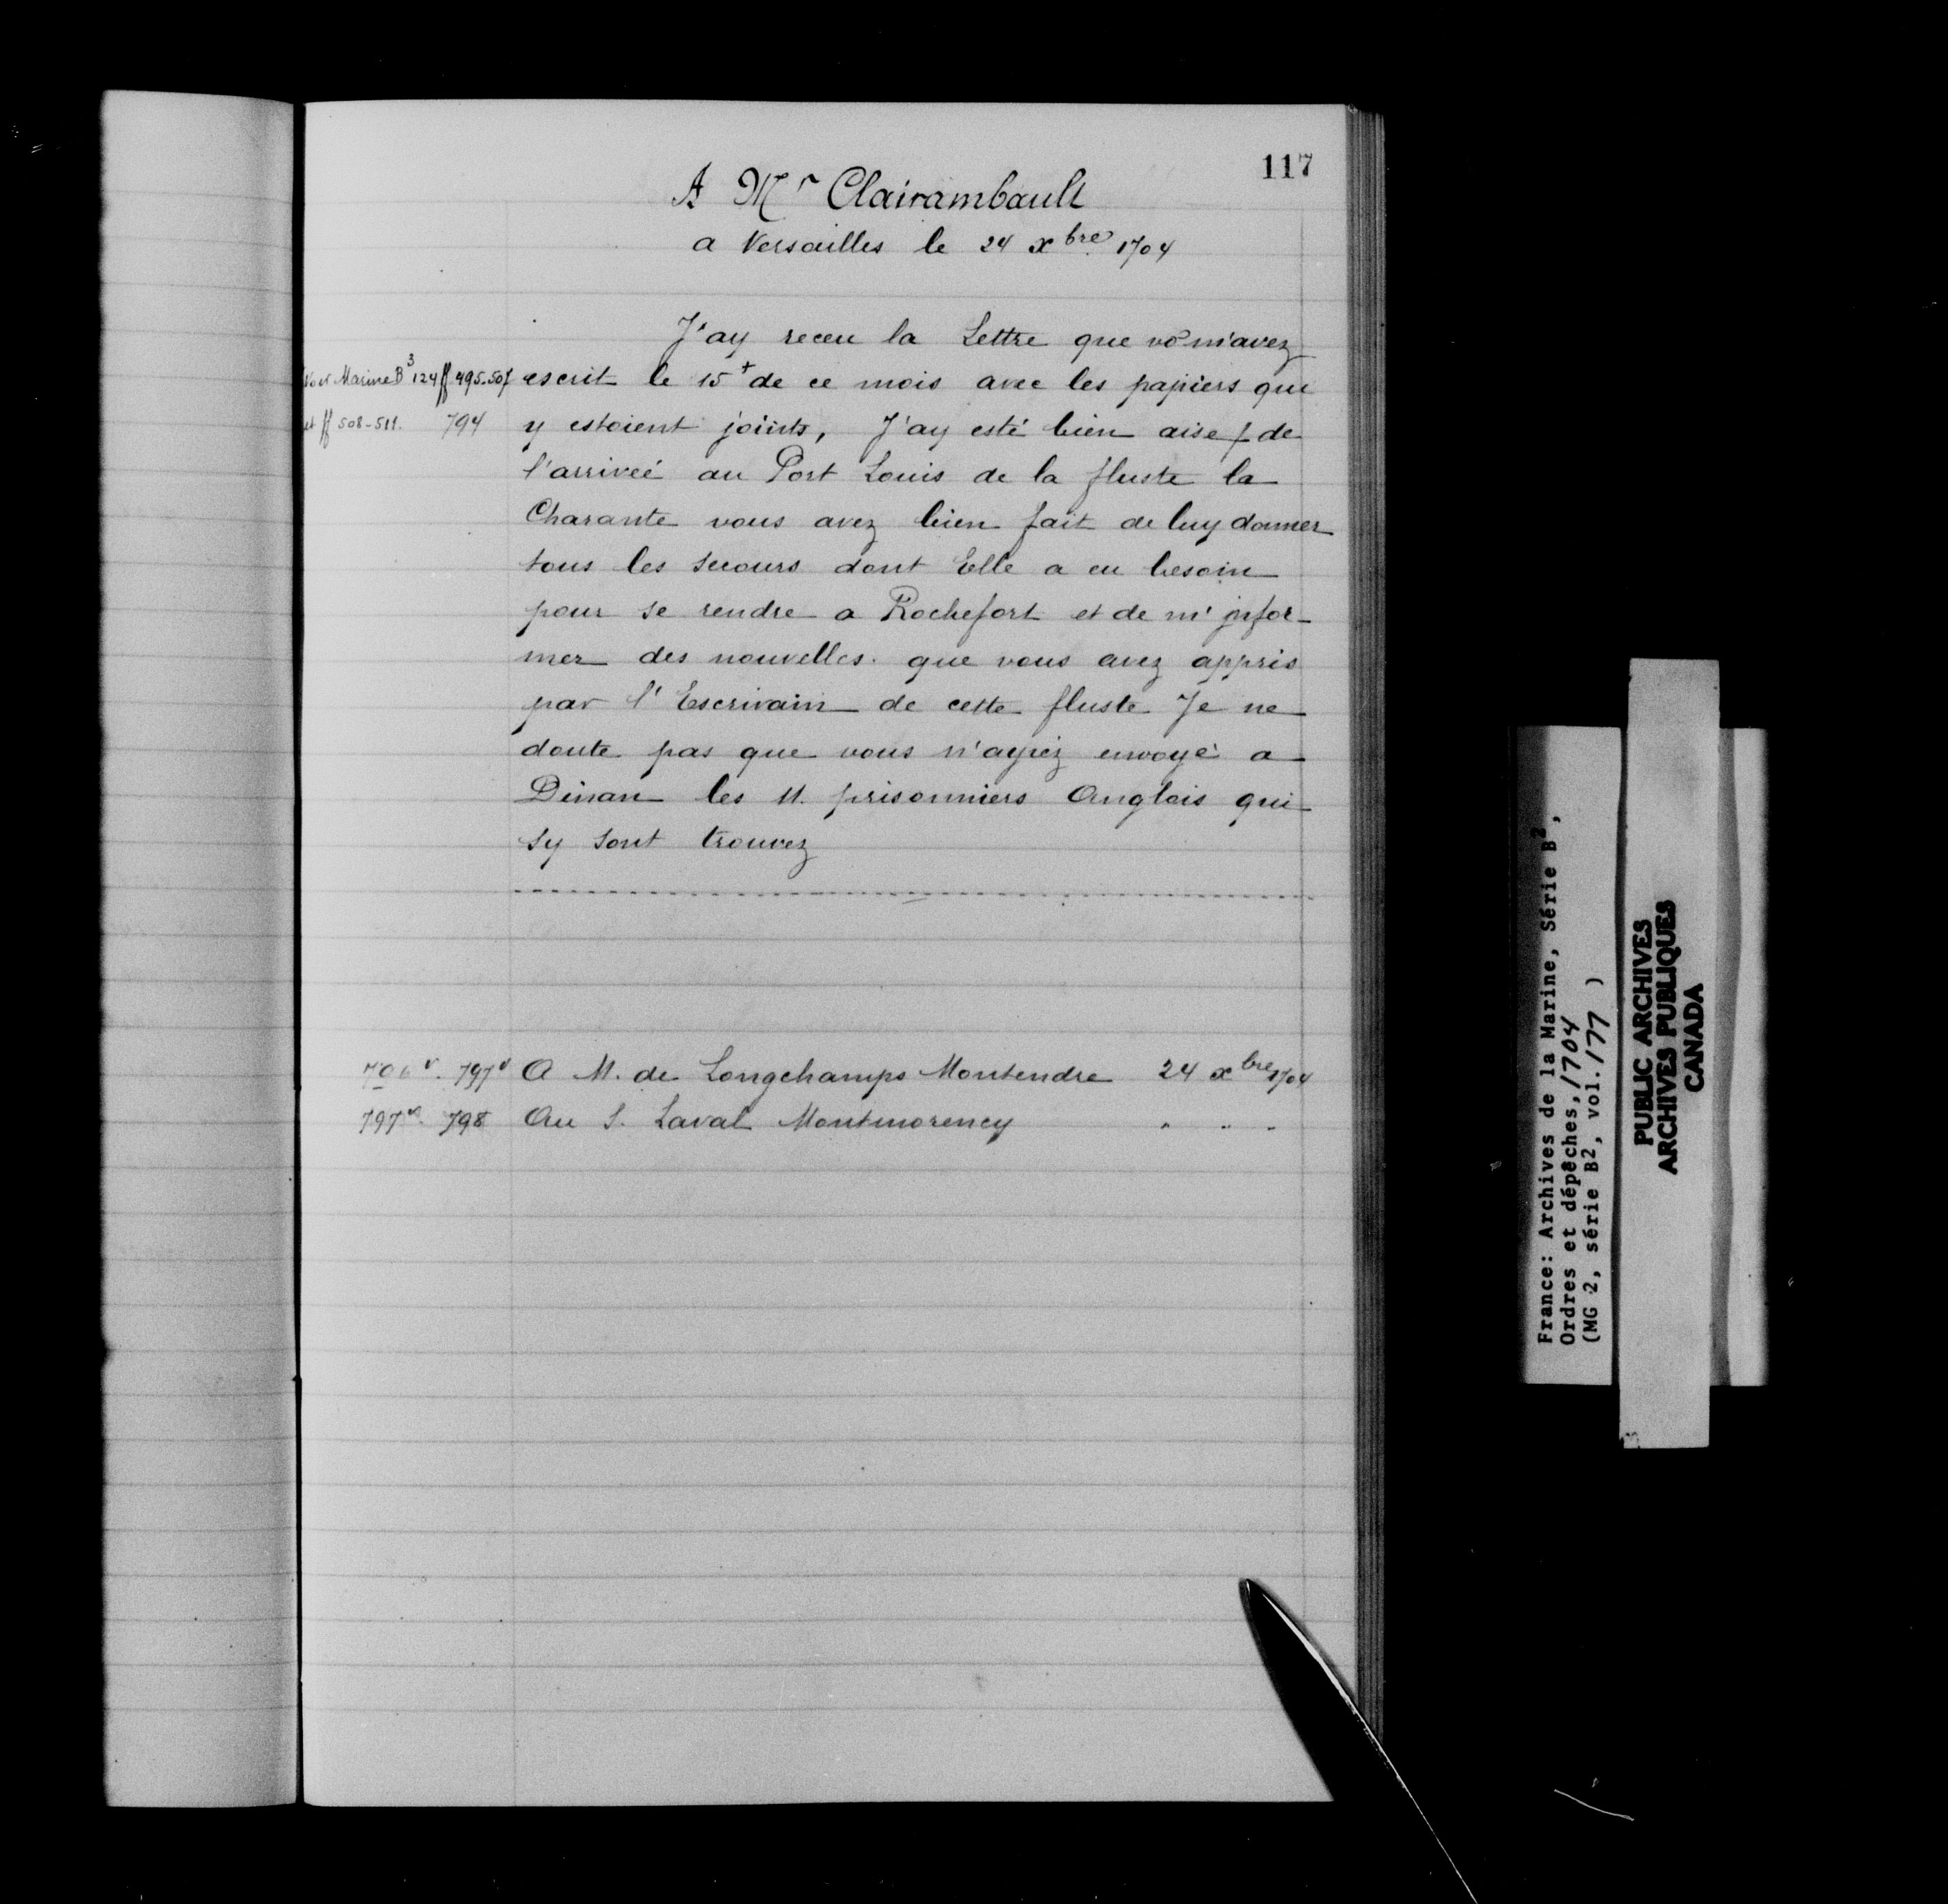 117
A Mr Clairambault
a Versailles le 24 xbre 1704
J'ay receu la Lettre que vo m'avez
escrit le 15 de ce mois avec les papiers qui
y estoient joints, J'ay esté bien aise de
l'arriveé au Port Louis de la fluste la
Charante vous avez bien fait de luy donner
tous les secours dont Elle a eu besoin
pour se rendre a Rochefort et de m'jnfor-
mer des nouvelles que vous avez appris
par l'Escrivain de cette fluste Je ne
doute pas que vous n'ayiez envoyé a
Dinan les 11. prisonniers Anglois qui
sy sont trouvez
Voir Marine B3 124 ff. 495-507
et ff 508-511. 794
797v A M. de Longchamps Montendre 24 xbre 1704
797v. 798 Au S. Laval Montmorency " " "
France: Archives de la Marine, Série B2,
Ordres et dépêches, 1704
(MG 2, série B2, vol. 177 )
PUBLIC ARCHIVES
ARCHIVES PUBLIQUES
CANADA